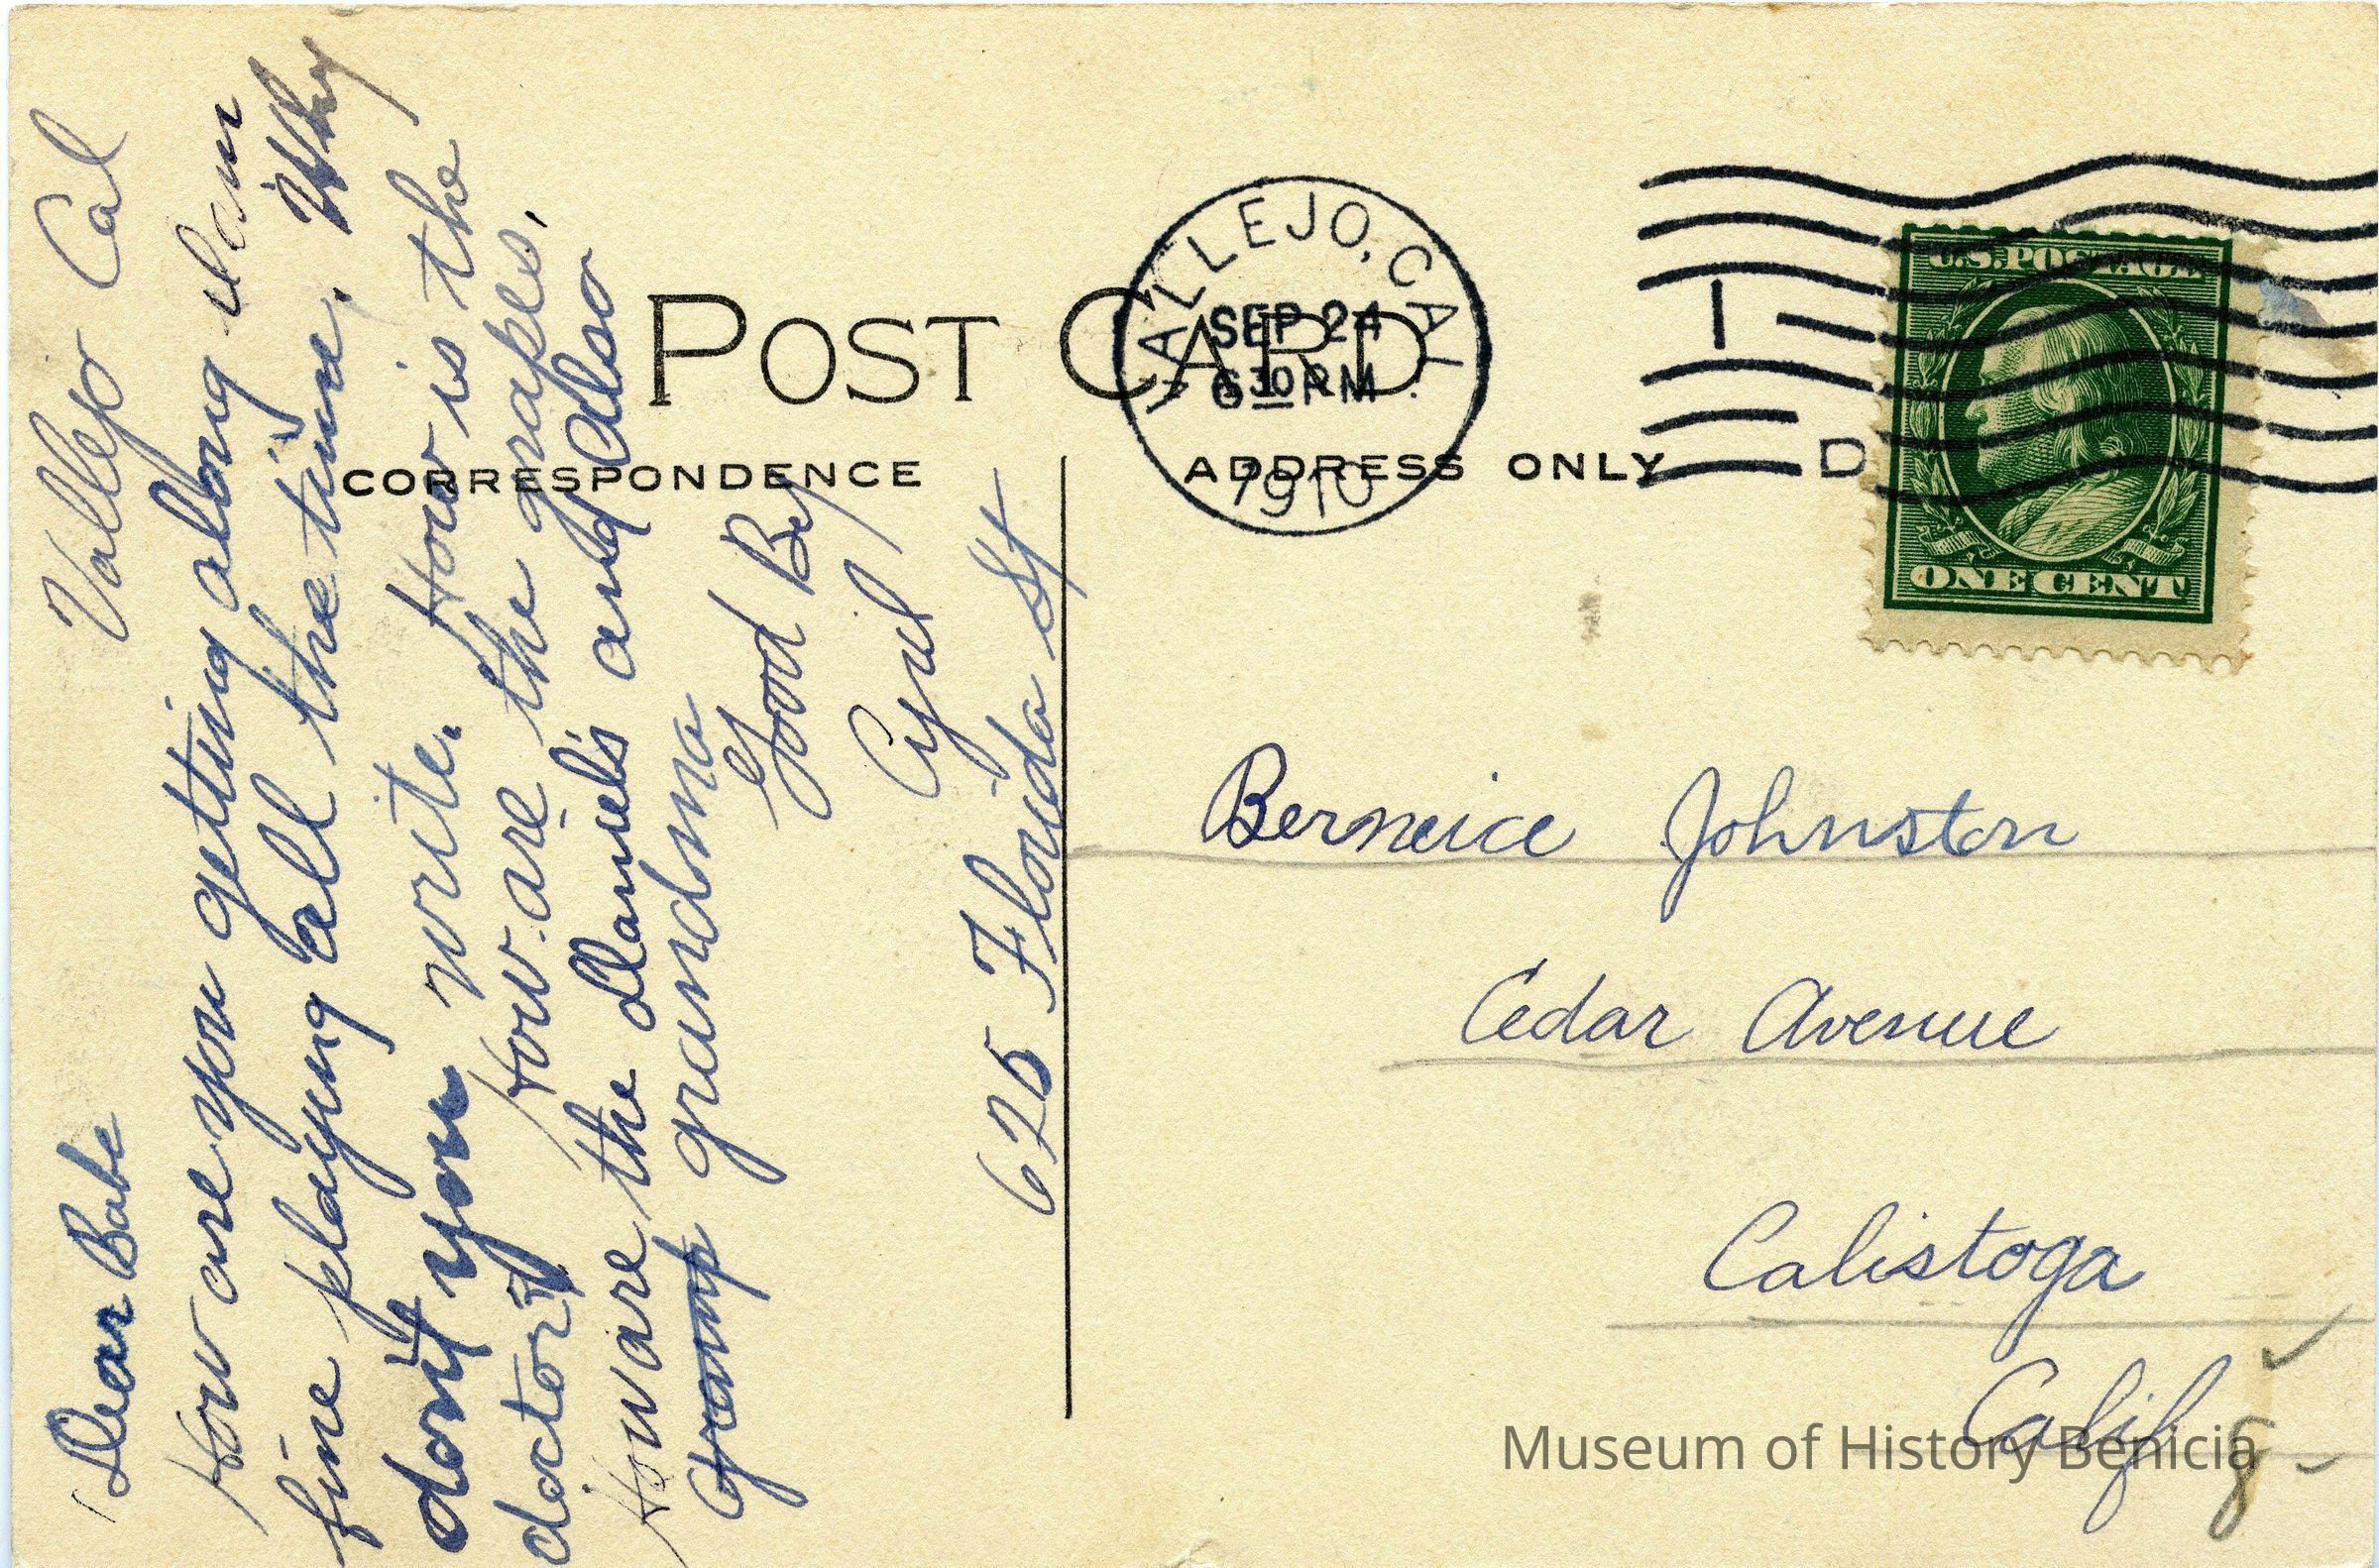 Vallejo Cal
Dear Babe
How are you getting along I am
fine playing all the time. Why
don't you write. How is the
doctor How are the grapes.
How are the Daniels and also
Gramp grandma
Good By
Cyril
625 Florida St
POST CARD
CORRESPONDENCE
ADDRESS ONLY
VALLEJO, CAL.
SEP 24
6 30 PM
1910
1
D
U.S. POSTAGE
ONE CENT
Berneice Johnston
Cedar Avenue
Calistoga
Calif
8
Museum of History Benicia